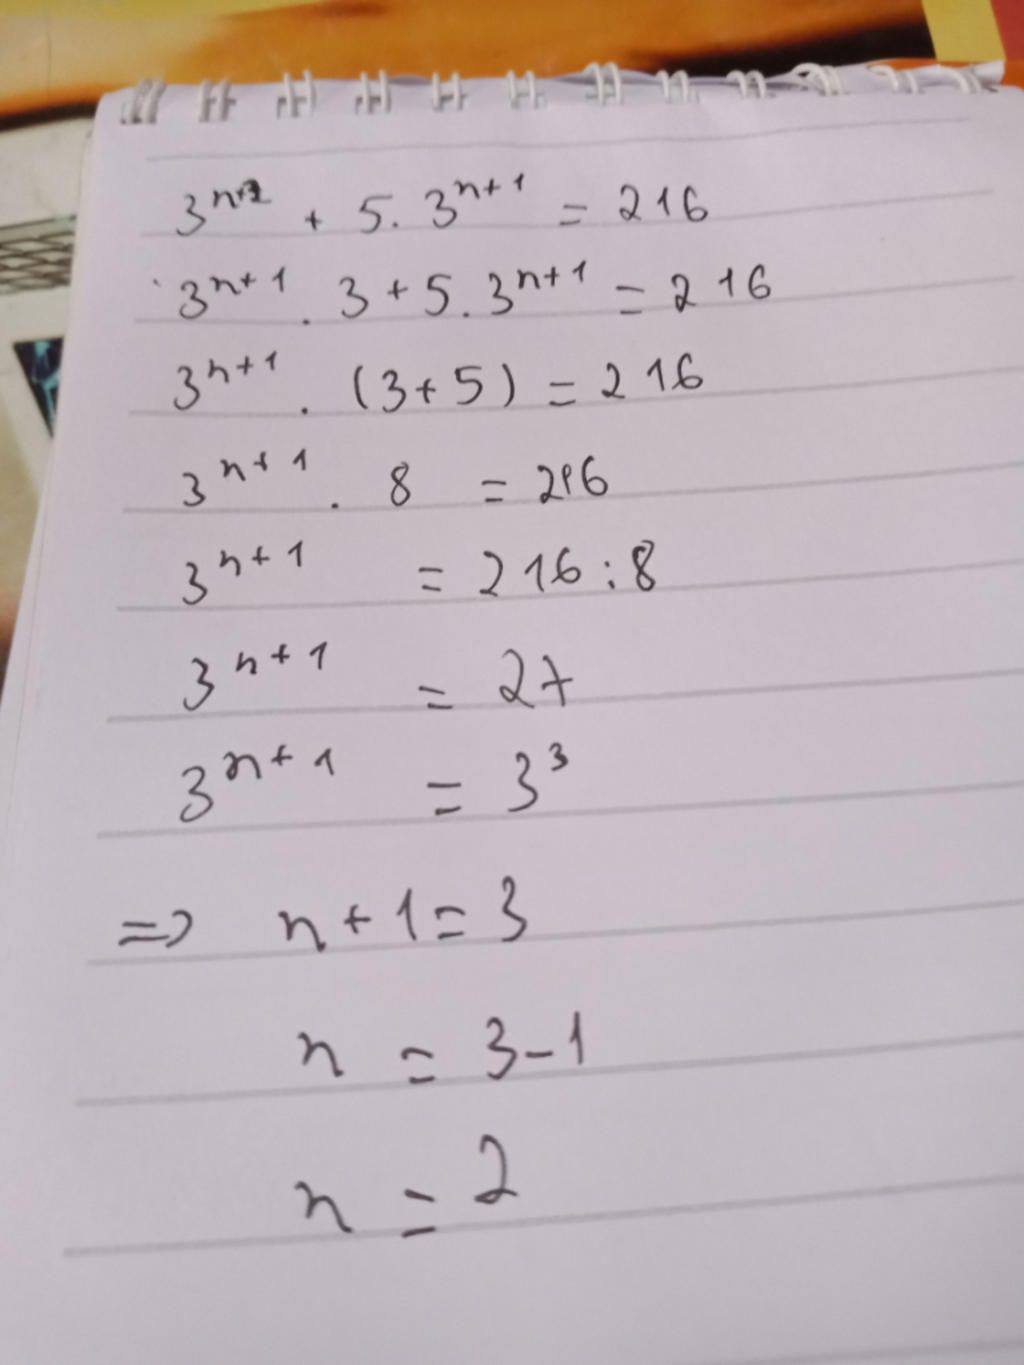 3^{n+2} + 5. 3^{n+1} = 216
3^{n+1} . 3 + 5. 3^{n+1} = 216
3^{n+1} . (3+5) = 216
3^{n+1} . 8 = 216
3^{n+1} = 216 : 8
3^{n+1} = 27
3^{n+1} = 3^3
=> n + 1 = 3
n = 3 - 1
n = 2